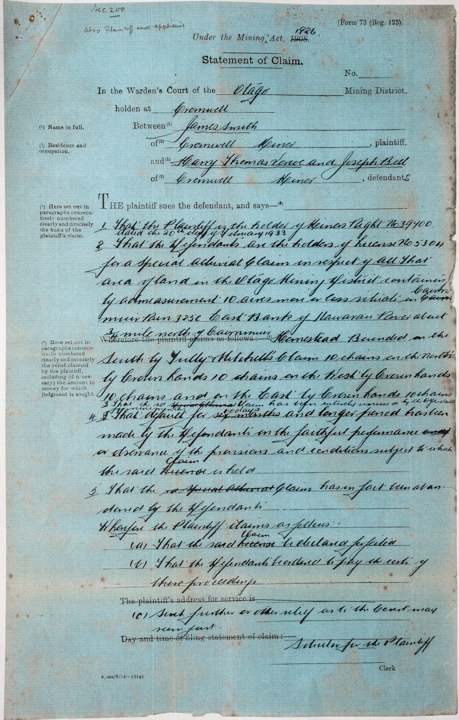 (Form 73 (Reg. 123).
Under the Mining Act, 1908. 1926.
Statement of Claim.
No.
In the Warden's Court of the Otago Mining District,
holden at Cromwell
(¹) Name in full.
Between⁽¹⁾ James Smith
(²) Residence and occupation.
of⁽²⁾ Cromwell Miner, plaintiff,
and⁽¹⁾ Harry Thomas and Joseph Bell
of⁽²⁾ Cromwell Miner, defendants
(³) Here set out in paragraphs consecutively numbered clearly and concisely the basis of the plaintiff's claim.
THE plaintiff sues the defendant, and says—⁽³⁾
1 That the Plaintiff is the holder of Miners Right No 39400
dated the 20th day of February 1933
2 That the Defendants are the holders of License No 5304
for a Special Alluvial Claim in respect of all that
area of land in the Otago Mining District containing
by admeasurement 10 acres more or less situate in Cairn
muir Run 325c East Bank of Kawarau River about
¾ mile north of Cairnmuir Homestead Bounded on the
Wherefore the plaintiff claims as follows
(⁴) Here set out in paragraphs consecutively numbered clearly and concisely the relief claimed by the plaintiff, including (if a case) the amount in money for which judgment is sought.
South by Claim 10 chains on the North
by Crown lands 10 chains on the West by Crown lands
10 chains and on the East by Crown lands 10 chains
4 That default for six months and longer period has been
made by the Defendants in the faithful performance
or observance of the provisions and conditions subject to which
the said license Claim is held
5 That the said Special Alluvial Claim has in fact been aban-
doned by the Defendants
Wherefore the Plaintiff claims as follows:-
(a) That the said license Claim be declared forfeited
(b) That the Defendants be ordered to pay the costs of
these proceedings
The plaintiff's address for service is
(c) Such further or other relief as to the Court may
seem just
Day and time of filing statement of claim:
Solicitor for the Plaintiff
Clerk